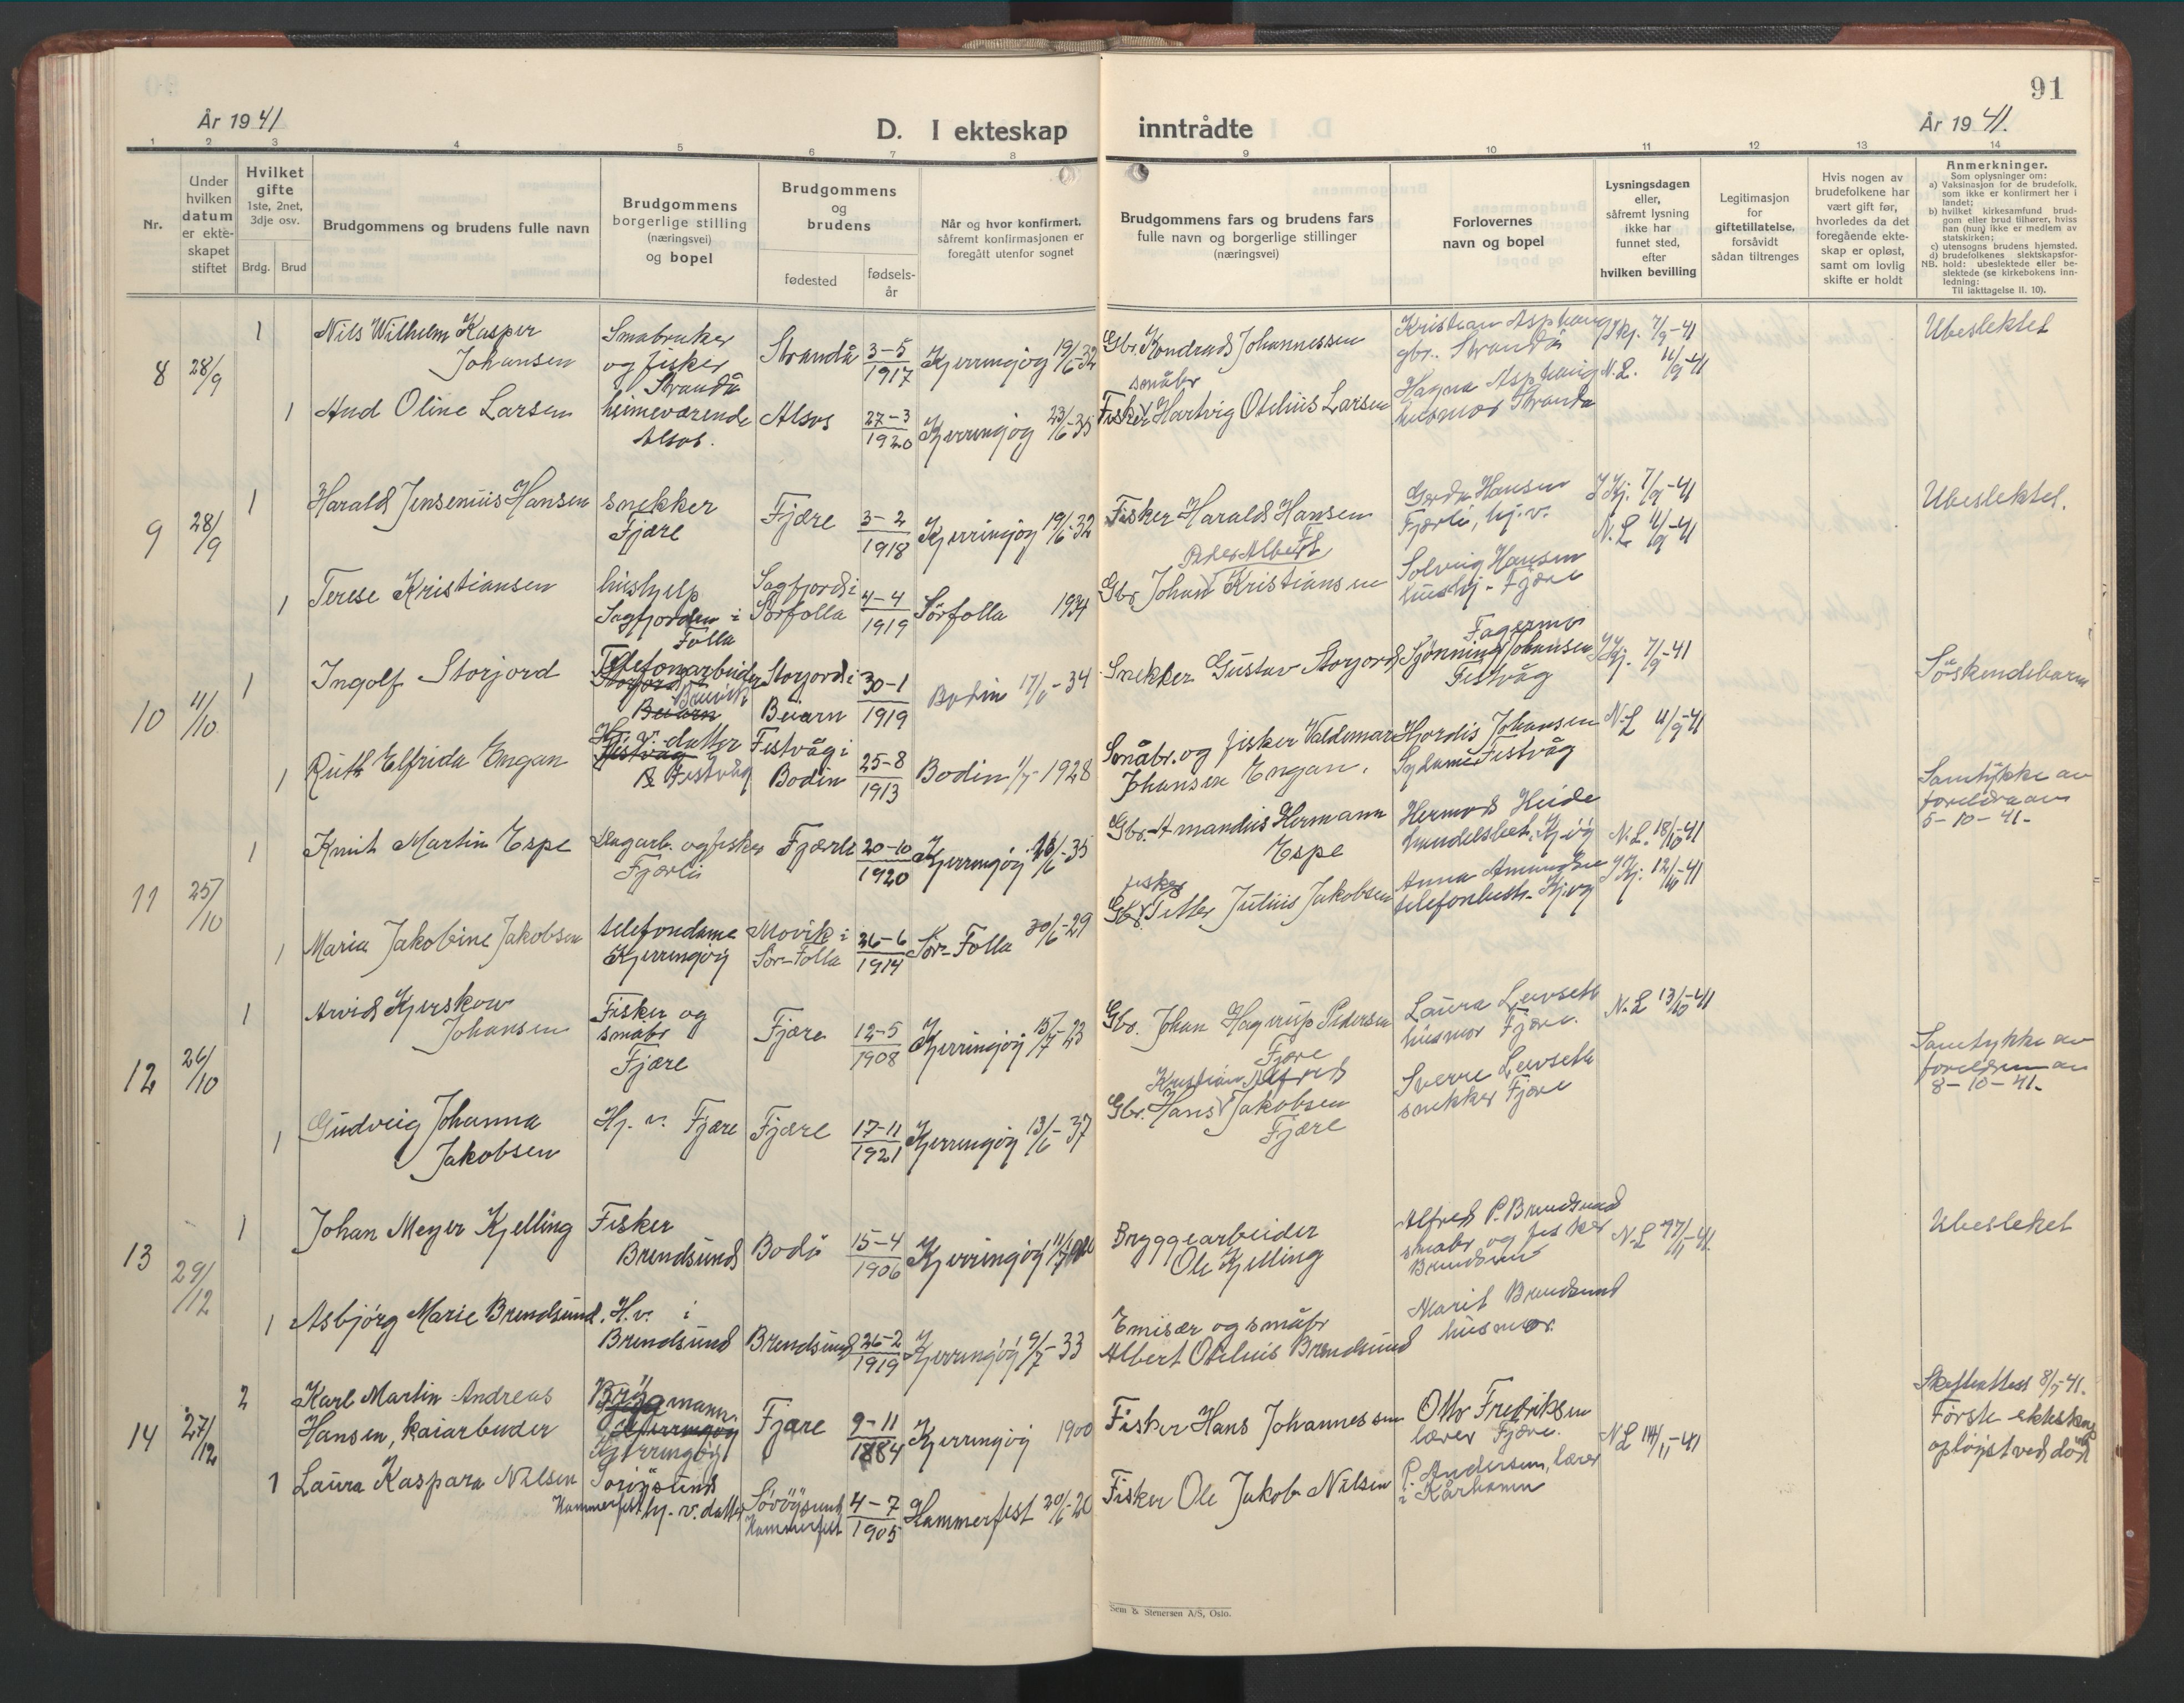 91
År 1941
D. I ekteskap inntrådte
År 1941.
1 2 3 4 5 6 7 8 9 10 11 12 13 14
Nr.
Under hvilken datum er ekte-skapet stiftet
Hvilket gifte 1ste, 2net, 3dje osv.
Brdg. Brud
Brudgommens og brudens fulle navn
Brudgommens borgerlige stilling (næringsvei) og bopel
Brudgommens og brudens
fødested
fødsels-år
Når og hvor konfirmert,
såfremt konfirmasjonen er
foregått utenfor sognet
Brudgommens fars og brudens fars
fulle navn og borgerlige stillinger
(næringsvei)
Forlovernes
navn og bopel
Lysningsdagen
eller,
såfremt lysning
ikke har
funnet sted,
efter
hvilken bevilling
Legitimasjon
for
giftetillatelse,
forsåvidt
sådan tiltrenges
Hvis nogen av
brudefolkene har
vært gift før,
hvorledes da det
foregående ekte-
skap er opløst,
samt om lovlig
skifte er holdt
Anmerkninger.
Som oplysninger om:
a) Vaksinasjon for de brudefolk,
som ikke er konfirmert her i
landet;
b) hvilket kirkesamfund brud-
gom eller brud tilhører, hviss
han (hun) ikke er medlem av
statskirken;
c) utensogns brudens hjemsted.
d) brudefolkenes slektskapsfor-
NB. hold: ubeslektede eller be-
slektede (se kirkebokens inn-
ledning:
Til iakttagelse II. 10).
8 28/9
1 Nils Wilhelm Kasper Johansen
Småbruker og fisker Strandå
Strandå 3-5 1917 Kjerringøy 19/6-32
Gbr. Kondrad Johannessen
Kristian Asphaug gbr. Strandå
Kj. 7/9-41
N.L. 11/9-41
Ubeslektet
1 Aud Oline Larsen
heimeværende Alsos.
Alsos 27-3 1920 Kjerringøy 23/6-35
småbr
Fisker Hartvig Otelius Larsen
Hagna Asphaug husmor Strandå
9 28/9
1 Harald Jensenius Hansen
snekker Fjære
Fjære 3-2 1918 Kjerringøy 19/6-32
Fisker Harald Hansen
Gerda Hansen Fjærli, hj.v.
Kj. 7/9-41
N.L. 11/9-41
Ubeslektet.
1 Terese Kristiansen
hushjelp Sagfjorden i Folla
Sagfjord i Sørfolla 4-4 1919 Sørfolla 1934
Peder Albert
Gbr Johan Kristiansen
Solveig Hansen hushj - Fjære
10 11/10
1 Ingolf Storjord
Telefonarbeider Storjord Beiarn
Storjord i Beiarn 30-1 1919 Bodin 17/6-34
Snekker Gustav Storjord
Fagermo
Sjønning Johansen Festvåg
Kj. 7/9-41
N.L 11/9-41
Søskendebarn
1 Ruth Elfrida Engan
Hj. v. datter Festvåg
Festvåg
Festvåg i Bodin 25-8 1913 Bodin 1/7-1928
Småbr. og fisker Valdemar Johansen Engan.
Hjordis Johansen Sydame Festvåg
11 25/10
1 Knut Martin Espe
Dagarb. og fisker Fjærli
Fjærli 20-10 1920 Kjerringøy /6-35
Gbr. Amandus Hermann Espe
Hermod Heide handelsbet. Kj-øy
N.L. 18/10-41
Kj. 12/10-41
Samtykke av foreldrene
5-10-41-
1 Maria Jakobine Jakobsen
telefondame Kjerringøy
Movik i Sør-Folla 26-6 1914 Sør-Folla 30/6-29
fisker
Gbr. Petter Julius Jakobsen
Anna telefonbest. Kj.øy
12 26/10
1 Arvid Kjerskow Johansen
Fisker og småbr Fjære
Fjære 12-5 1908 Kjerringøy 15/7-23
Gbr. Johan Hagerup Pedersen Fjære
Laura Levseth husmor Fjære.
N.L 13/10-41
Samtykke av
8-10-41.
1 Gudveig Johanna Jakobsen
Hj. v. Fjære
Fjære 17-11 1921 Kjerringøy 13/6-37
Kristian Alfred
Gbr. Hans Jakobsen Fjære
Sverre Levseth snekker Fjære
13 29/12
1 Johan Meyer Kjelling
Fisker Brendsund
Bodø 15-4 1906 Kjerringøy
Bryggearbeider Ole Kjelling
Alfred P. Brendsund småbr og fisker Brendsund
N.L /11-41.
Ubesleket
1 Asbjørg Marie Brendsund.
H.v. i Brendsund
Brendsund 26-2 1919 Kjerringøy 9/7-33
Emisær og småbr Albert Otelius Brendsund
Marit Brendsund husmor.
14 27/12
2 Karl Martin Andreas Hansen, kaiarbeider
Kjerringøy
Kjerringøy
Fjære 9-11 1884 Kjerringøy 1900
Fisker Hans Johannessen
Otto Fredriksen lærer Fjære.
N.L 14/11-41
Skifteattest 8/5-41.
Første ekteskap
opløyst ved død
1 Laura Kaspara Nilsen
Hammerfest hj. v. datter
Sørøysund Hammerfest 4-7 1905 Hammerfest 20/6-20
Fisker Ole Jakob Nilsen
P. Andersen, lærer i Kårhamn
Sem & Stenersen A/S, Oslo.